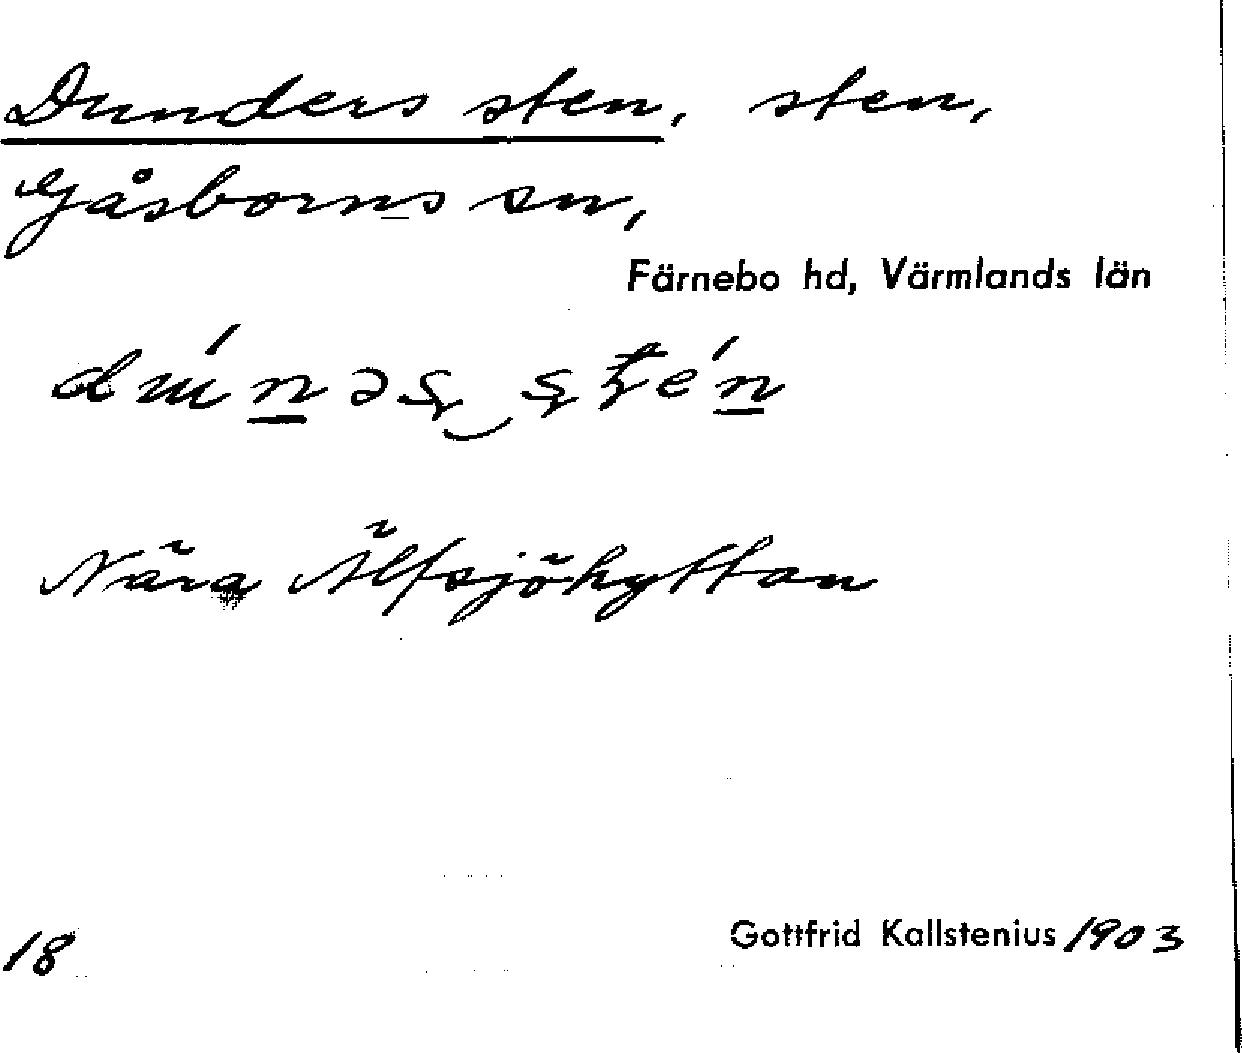 Dunders sten, sten,
Gåsborns sn,
Färnebo hd, Värmlands län
Nära Älfsjöhyttan
18
Gottfrid Kallstenius 1903